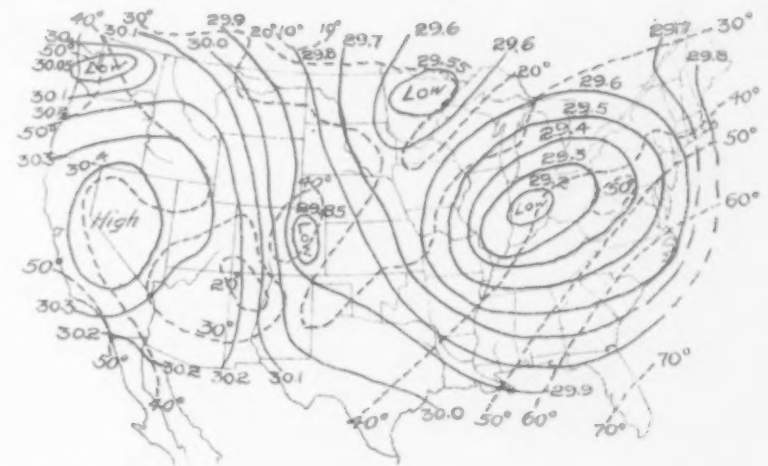 40° 30° 29.9 20° 10° 10° 29.6 29.7 30°
30. 30.1 30.0 29.8 29.7 29.6 29.8
50°
30.05 Low 29.55
Low 20° 29.6
30.1 29.5 40°
30.2 29.4
50° 29.3 50°
30.3 29.2
30.4 40° Low 50° 60°
High 29.85
Low
50° 20°
30.3 30°
30.2 70°
50° 30.2 30.2 30.1 29.9
40° 40° 30.0 50° 60° 70°